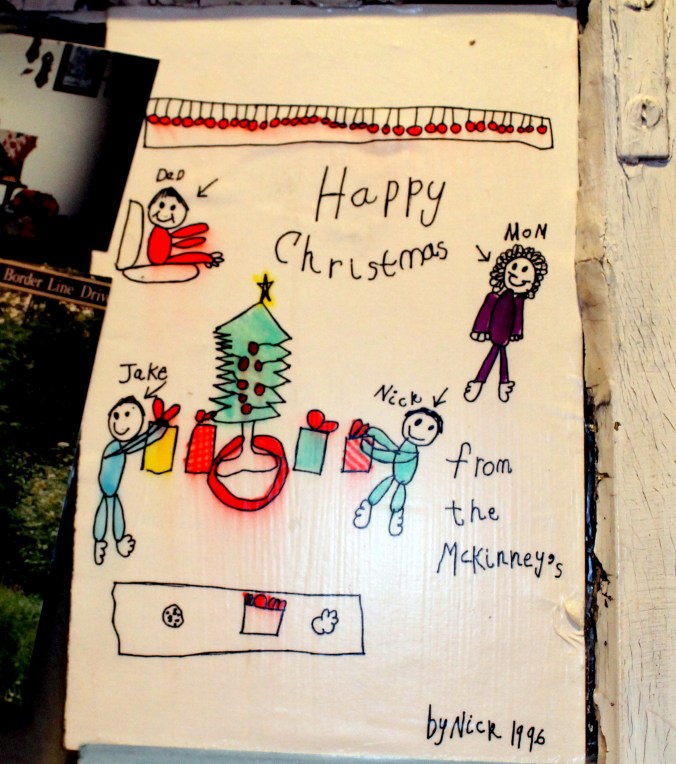 Dad
Happy
Christmas
Mom
Border Line Driv
Jake
Nick
from
the
McKinney's
by Nick 1996